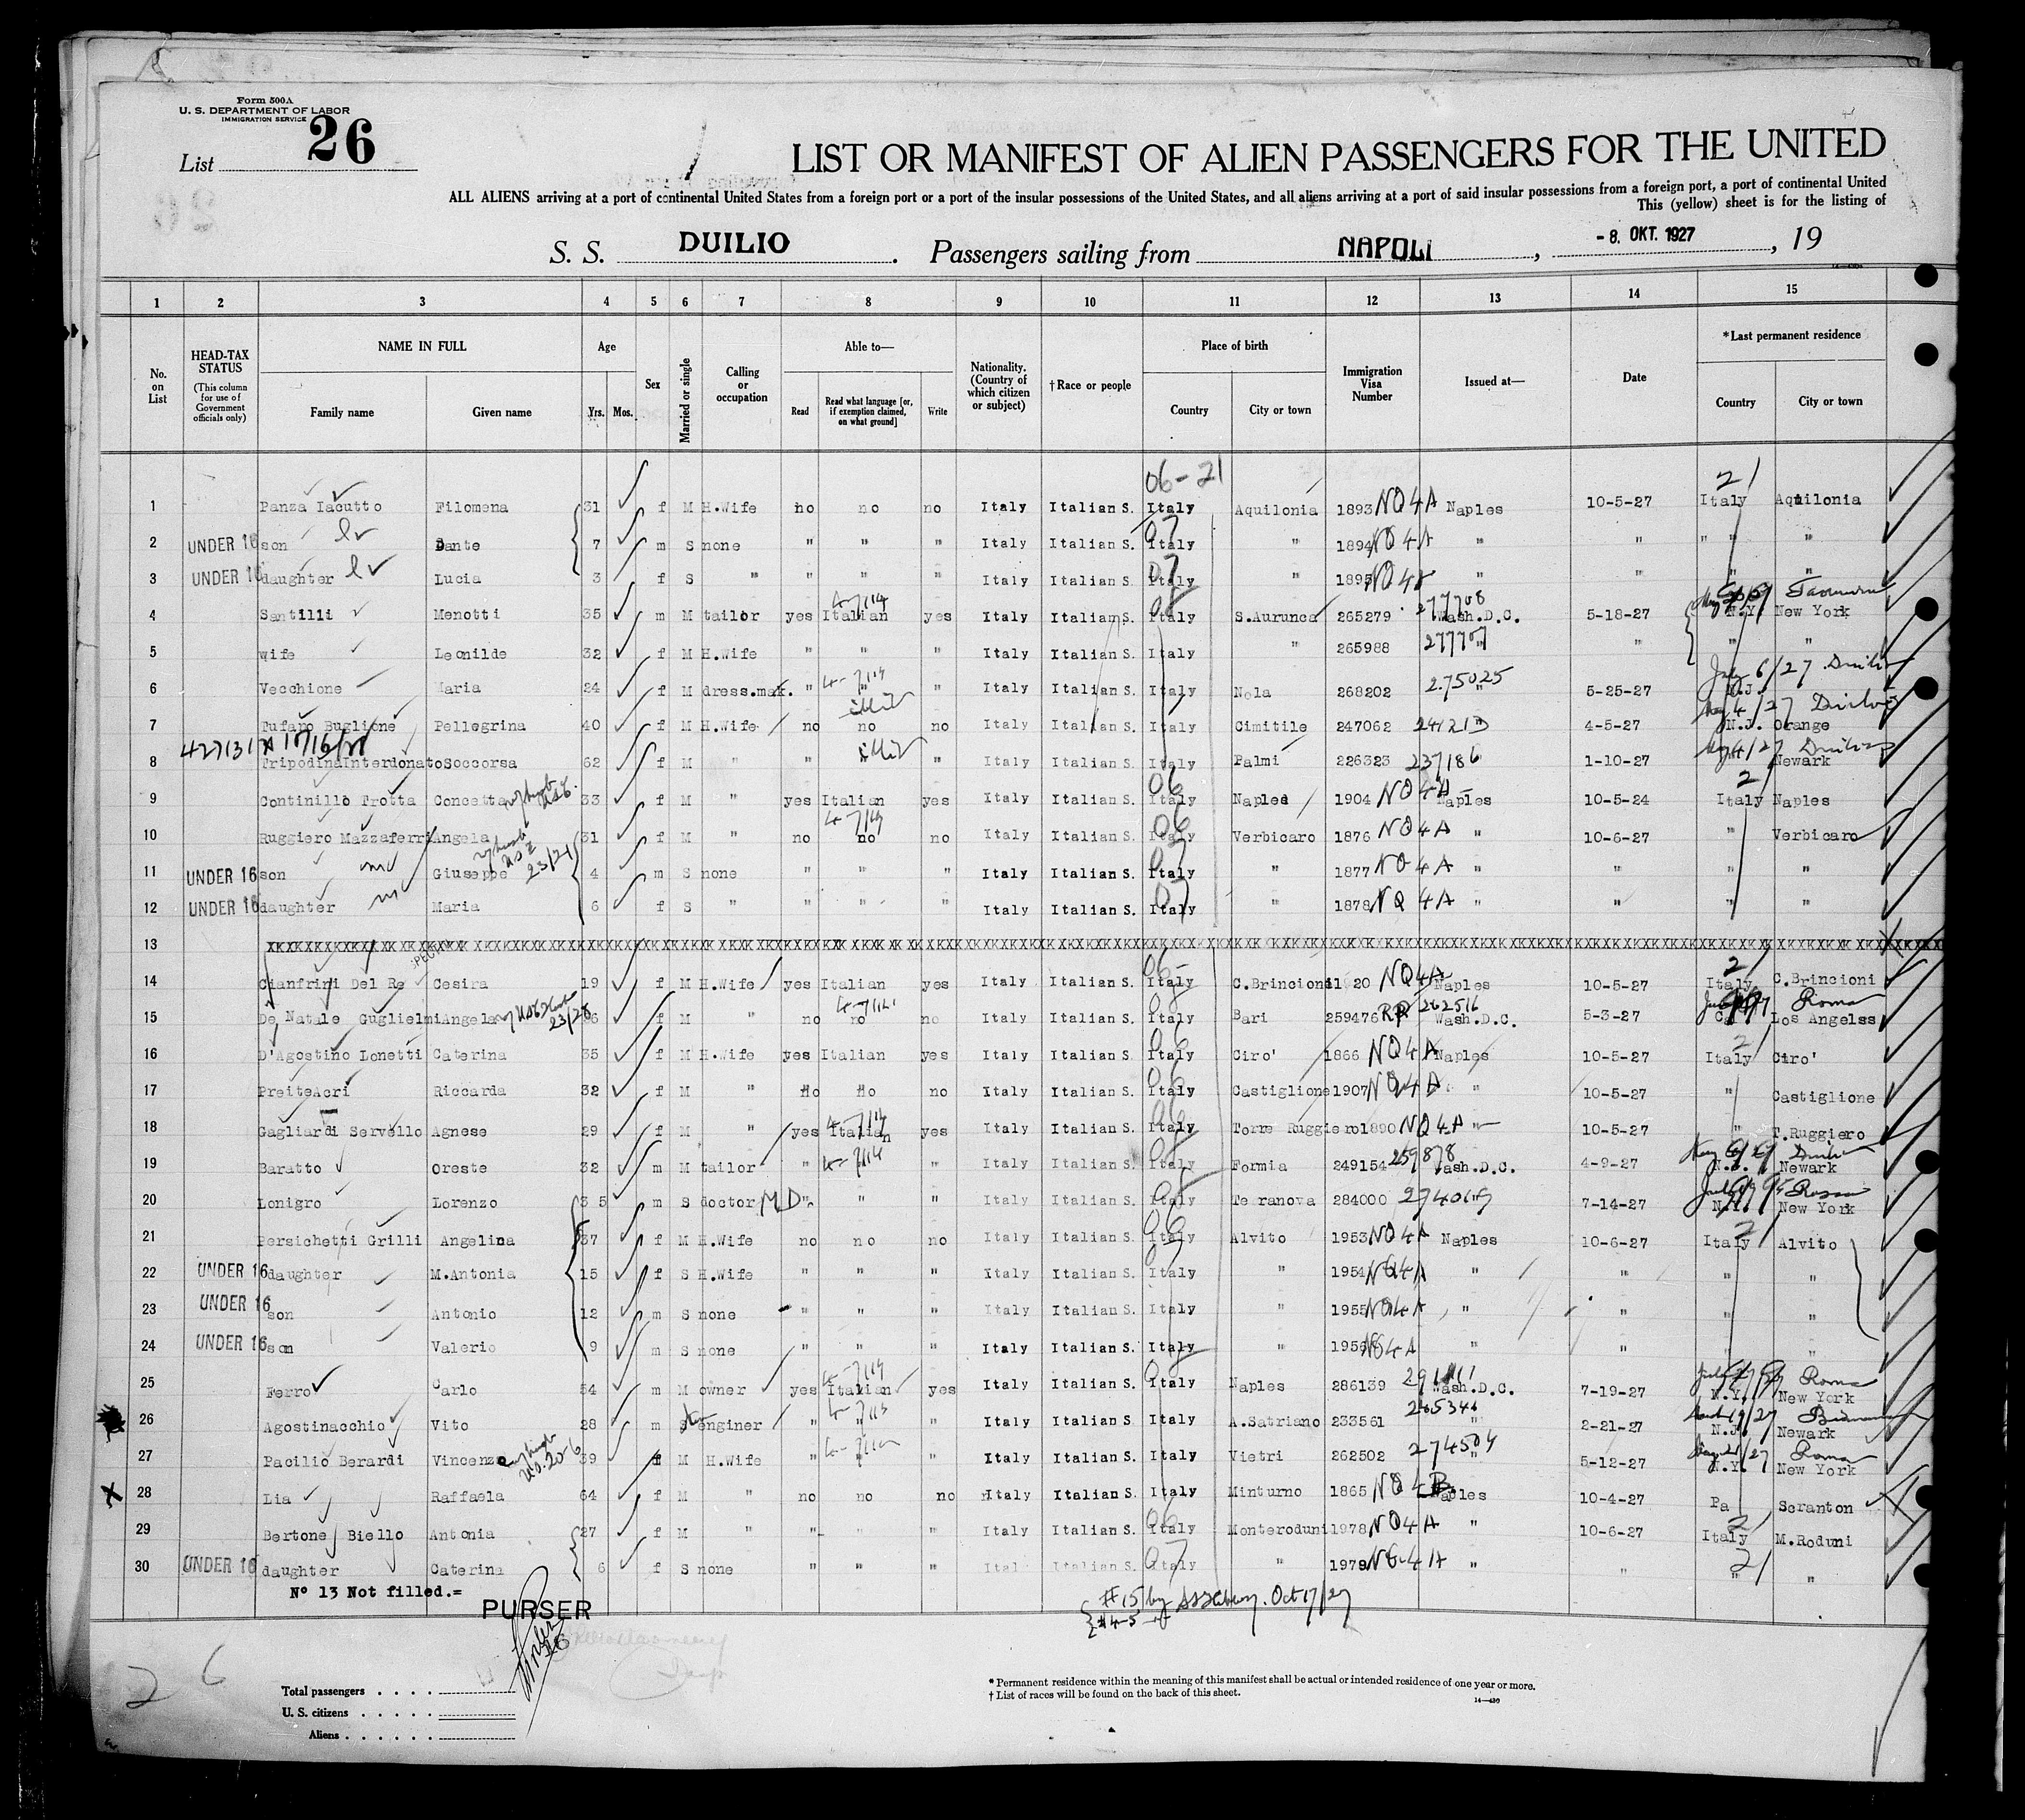 Form 500A
U. S. DEPARTMENT OF LABOR
IMMIGRATION SERVICE
List 26
LIST OR MANIFEST OF ALIEN PASSENGERS FOR THE UNITED
ALL ALIENS arriving at a port of continental United States from a foreign port or a port of the insular possessions of the United States, and all aliens arriving at a port of said insular possessions from a foreign port, a port of continental United
This (yellow) sheet is for the listing of
S. S. DUILIO . Passengers sailing from NAPOLI , - 8. OKT. 1927 , 19
1 2 3 4 5 6 7 8 9 10 11 12 13 14 15
No. on List HEAD-TAX STATUS (This column for use of Government officials only) NAME IN FULL Family name Given name Age Yrs. Mos. Sex Married or single Calling or occupation Able to— Read Read what language [or, if exemption claimed, on what ground] Write Nationality. (Country of which citizen or subject) † Race or people Place of birth Country City or town Immigration Visa Number Issued at— Date * Last permanent residence Country City or town
06-21 2
1 Panza Iacutto Filomena 31 f M H.Wife no no no Italy Italian S. Italy Aquilonia 1893 NQ4A Naples 10-5-27 Italy Aquilonia
2 UNDER 16 son Dante 7 m S none " " " Italy Italian S. Italy " 1894 NQ4A " " " "
3 UNDER 16 daughter Lucia 3 f S " " " " Italy Italian S. Italy " 1895 NQ4 " " " "
4 Santilli Menotti 35 m M tailor yes Italian yes Italy Italian S. Italy S.Aurunca 265279 277708 Wash.D.C. 5-18-27 N.Y. New York
5 wife Leonilde 32 f M H.Wife " " " Italy Italian S. Italy " 265988 277707 " " " "
6 Vecchione Maria 24 f M dress.mak. " " " Italy Italian S. Italy Nola 268202 275025 " 5-25-27 N.J. "
7 Tufano Buglione Pellegrina 40 f M H.Wife no no no Italy Italian S. Italy Cimitile 247062 " 4-5-27 N.J. Orange
8 TripodinaInterdonato Soccorsa 62 f M " " " Italy Italian S. Italy Palmi 226323 237186 1-10-27 " Newark
9 Continillo Trotta Concetta 33 f M " yes Italian yes Italy Italian S. Italy Naples 1904 NQ4A Naples 10-5-24 Italy Naples
10 Ruggiero Mazzaferri Angela 31 f M " no no no Italy Italian S. Italy Verbicaro 1876 NQ4A " 10-6-27 " Verbicaro
11 UNDER 16 son Giuseppe 4 m S none " " " Italy Italian S. Italy " 1877 NQ4A " " " "
12 UNDER 16 daughter Maria 6 f S " " " " Italy Italian S. Italy " 1878 NQ4A " " " "
13
14 Cianfrini Del Re Cesira 19 f M H.Wife yes Italian yes Italy Italian S. Italy C.Brincioni 1120 NQ4A Naples 10-5-27 Italy C.Brincioni
15 De Natale Guglielmi Angela f M " no no no Italy Italian S. Italy Bari 259476 RP 262516 Wash.D.C. 5-3-27 Los Angelss
16 D'Agostino Lonetti Caterina 35 f M H.Wife yes Italian yes Italy Italian S. Italy Ciro' 1866 NQ4A Naples 10-5-27 Italy Ciro'
17 PreiteAcri Riccarda 32 f M " no no no Italy Italian S. Italy Castiglione 1907 NQ4A " 10-5-27 " Castiglione
18 Gagliardi Servello Agnese 29 f M " yes Italian yes Italy Italian S. Italy Torre Ruggiero 1890 NQ4A " 10-5-27 " T.Ruggiero
19 Baratto Oreste 32 m M tailor " " Italy Italian S. Italy Formia 249154 259878 Wash.D.C. 4-9-27 N.J. Newark
20 Lonigro Lorenzo 35 m S doctor M D " " " Italy Italian S. Italy Te ranova 284000 " 7-14-27 N.Y. New York
21 Persichetti Grilli Angelina 37 f M H.Wife no no no Italy Italian S. Italy Alvito 1953 NQ4A Naples 10-6-27 Italy Alvito
22 UNDER 16 daughter M.Antonia 15 f S H.Wife " " " Italy Italian S. Italy " 1954 NQ4A " " " "
23 UNDER 16 son Antonio 12 m S none " " " Italy Italian S. Italy " 1955 NQ4A " " " "
24 UNDER 16 son Valerio 9 m S none " " " Italy Italian S. Italy 1956 NQ4A " " " "
25 Ferro Carlo 54 m M owner yes Italian yes Italy Italian S. Italy Naples 286139 Wash.D.C. 7-19-27 N.Y. Roma New York
26 Agostinacchio Vito 28 m S enginer " " " Italy Italian S. Italy A.Satriano 233561 265346 " 2-21-27 N.J. Newark
27 Pacilio Berardi Vincenza 39 f M H.Wife " " " Italy Italian S. Italy Vietri 262502 274504 " 5-12-27 N.Y. Roma New York
28 Lia Raffaela 64 f M " no no no Italy Italian S. Italy Minturno 1865 NQ4B Naples 10-4-27 Pa Scranton
29 Bertone Biello Antonia 27 f M " " " " Italy Italian S. Italy Monteroduni 1978 NQ4A " 10-6-27 Italy M.Roduni
30 UNDER 16 daughter Caterina 6 f S none " " " Ital Italian S. Italy " 1979 NQ4A " " " "
Nº 13 Not filled.=
PURSER
#15 by Oct 17/27
#4-5
26
Total passengers
U. S. citizens
Aliens
* Permanent residence within the meaning of this manifest shall be actual or intended residence of one year or more.
† List of races will be found on the back of this sheet.
14—430